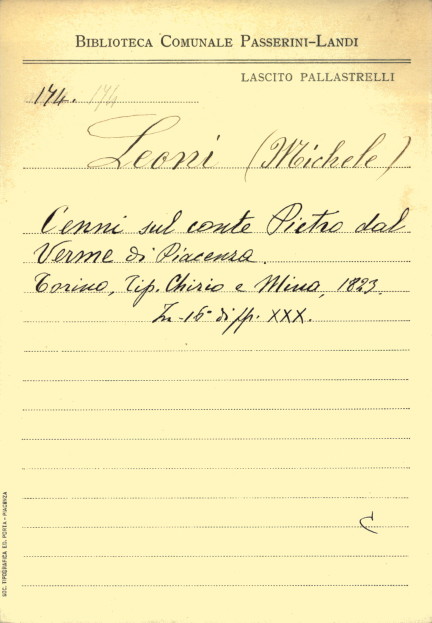 BIBLIOTECA COMUNALE PASSERINI-LANDI
LASCITO PALLASTRELLI
174. 174
Leoni (Michele)
Cenni sul conte Pietro dal
Verme di Piacenza.
Torino, Tip. Chirio e Mina, 1823.
In-16° di pp. XXX.
C
SOC. TIPOGRAFICA ED. PORTA - PIACENZA